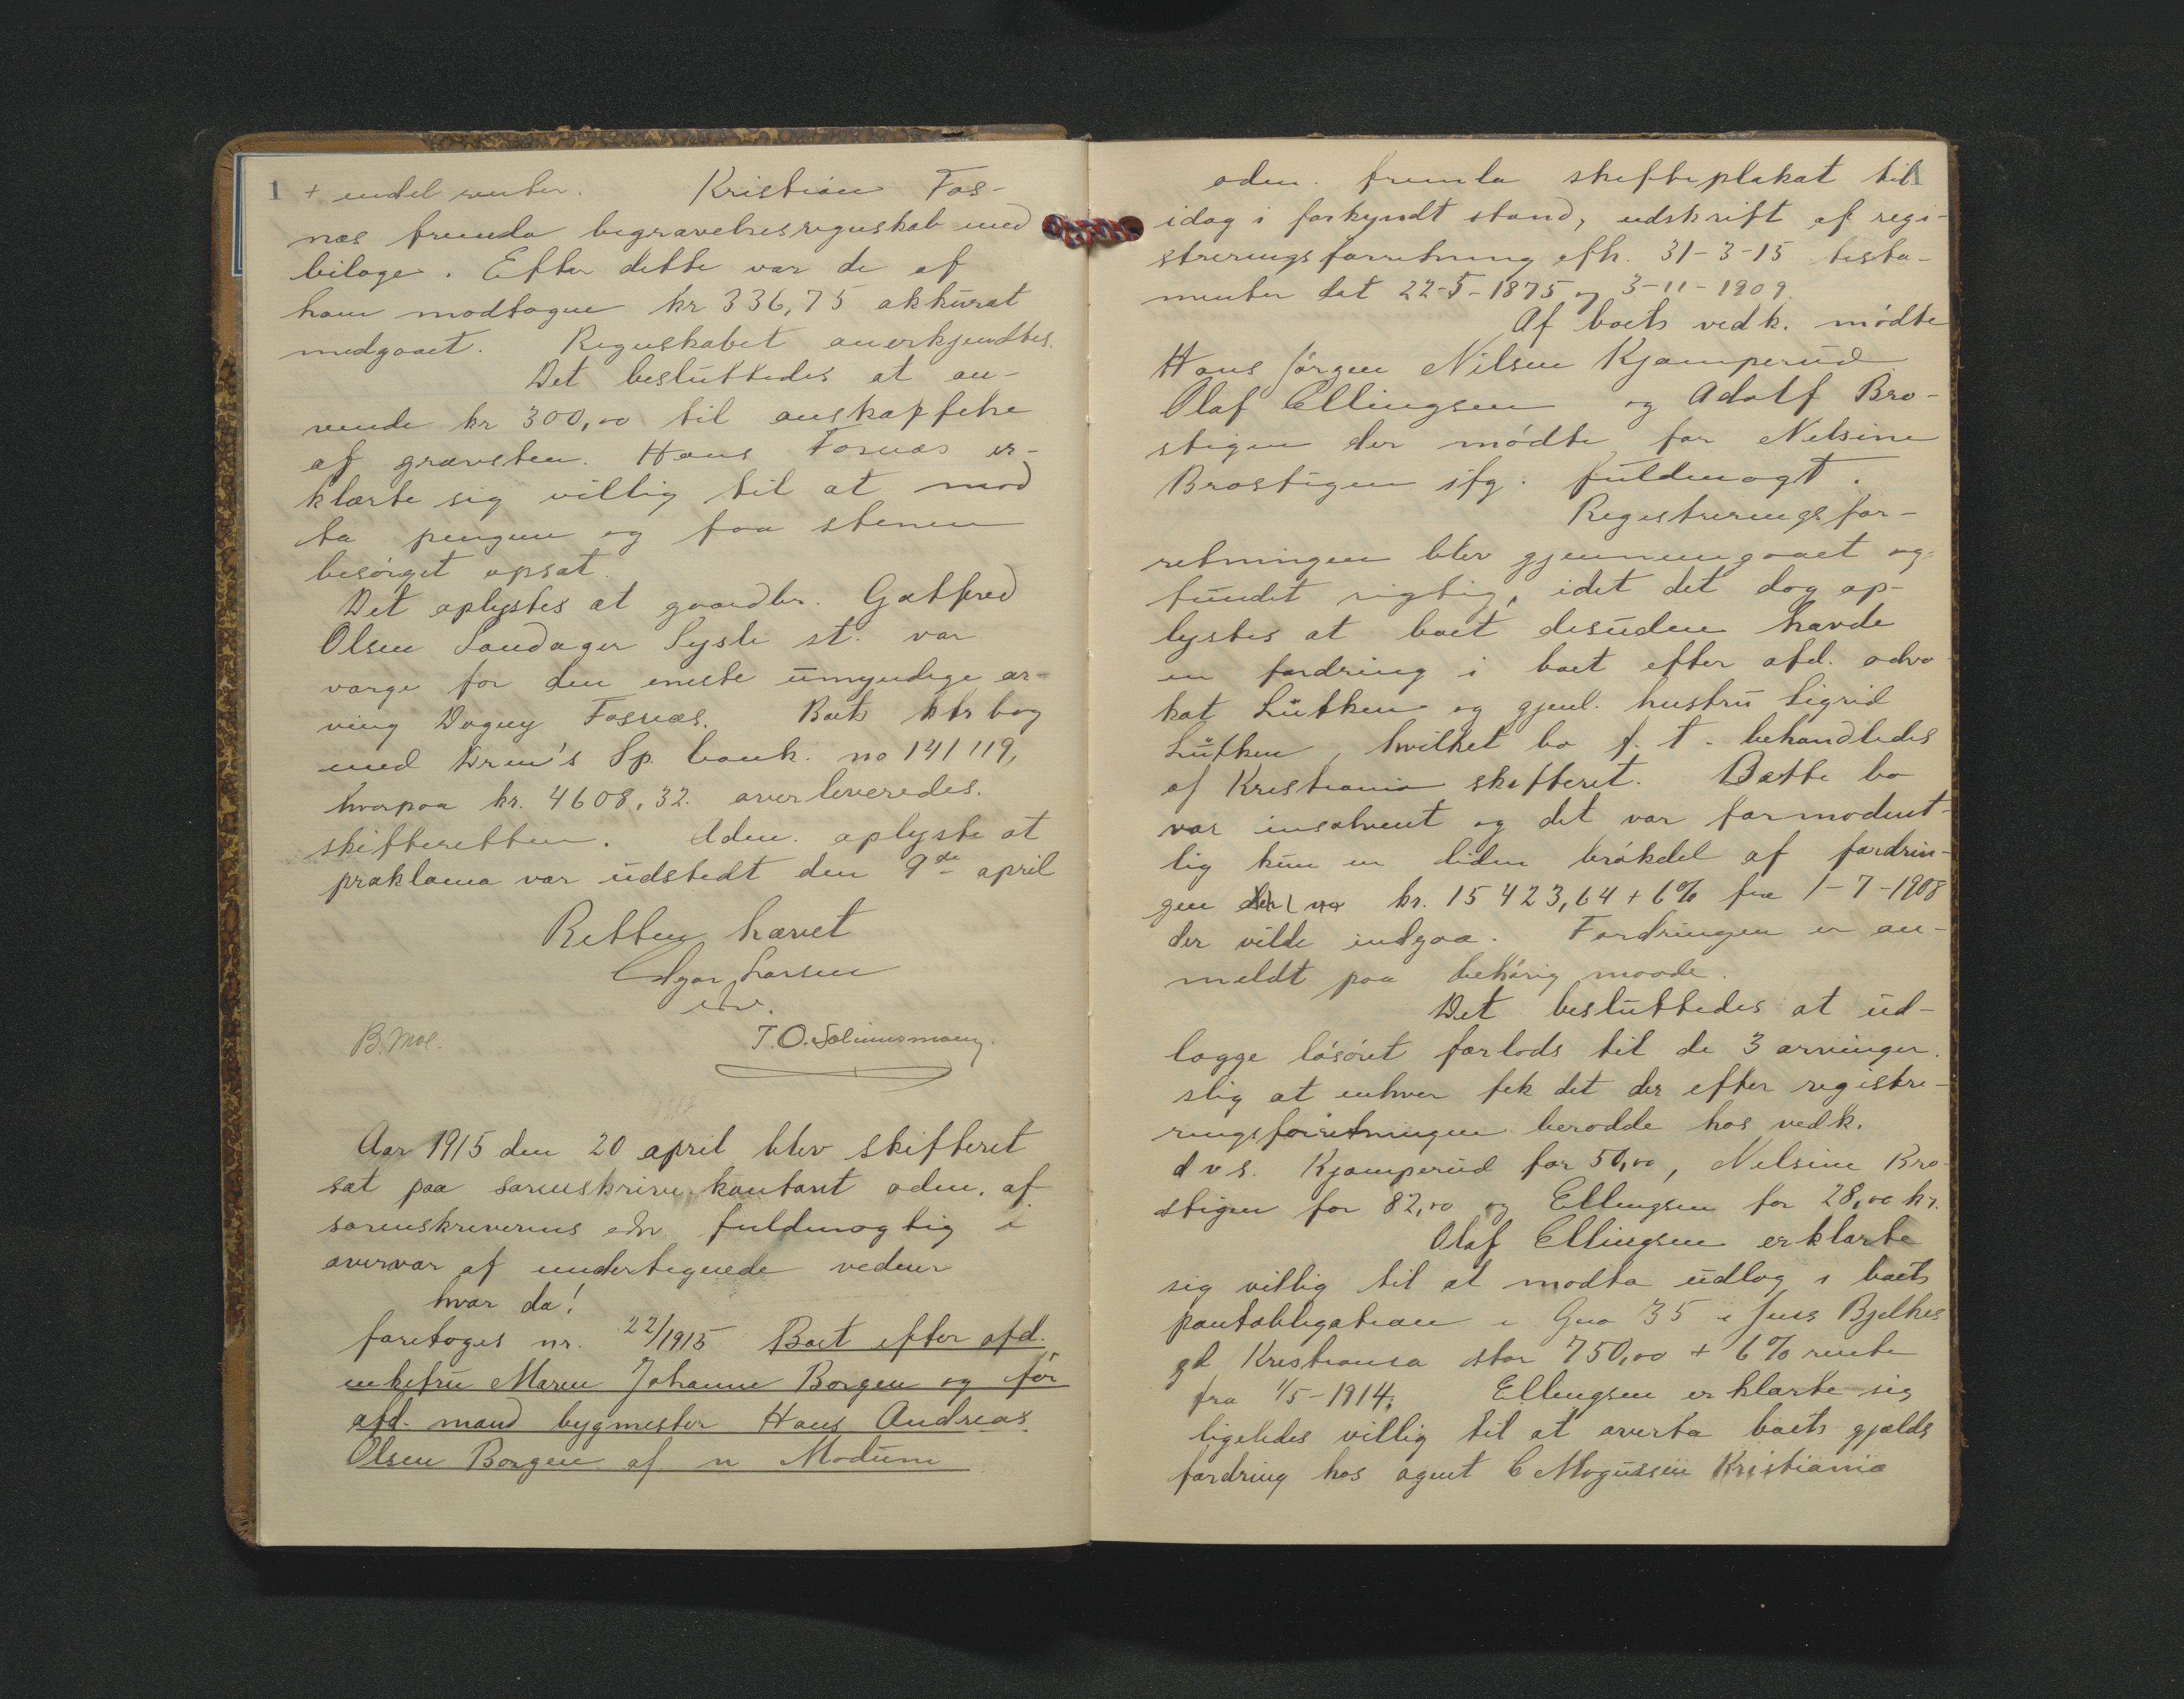 1 + endel renter. Kristian Fos-
næs fremla begravelsesregnskab med
bilage. Efter dette var de af
ham modtagne kr 336,75 akkurat
medgaaet. Regnskabet anerkjendtes.
Det besluttedes at an-
vende kr 300,00 til anskaffelse
af gravsten. Hans Fosnæs er-
klærte sig villig til at mod
ta pengene og faa stenen
besørget opsat.
Det oplystes at gaardbr. Gotfred
Olsen Sandager Sysle st. var
værge for den eneste umyndige ar-
ving Dagny Fosnæs. Boets ktr bog
med Drm's Sp. bank. no 141119,
hvorpaa kr. 4608,32. overleveredes.
skifteretten. Adm. oplyste at
proklama var udstedt den 9de april
Retten hævet
Edgar Larsen
edv.
B. Moe. T. O. Solumsmoen.
Aar 1915 den 20 april blev skifteret
sat paa sorenskriverkontoret adm. af
sorenskriverens edv. fuldmægtig i
overvær af undertegnede vedner
hvor da!
foretoges nr. 22/1915 Boet efter afd.
enkefru Maren Johanne Borgen og før
afd. mand bygmester Hans Andreas
Olsen Borgen af n Modum
adm. fremla skifteplakat til
idag i forkyndt stand, udskrift af regi-
streringsforretning afh. 31-3-15 testa-
menter dat 22-5-1875 og 3-11-1909.
Af boets vedk. mødte
Hans Jørgen Nilsen Kjæmperud
Olaf Ellingsen og Adolf Bro-
stigen der mødte for Nelsine
Brostigen ifg. fuldmagt.
Registreringsfor-
retningen blev gjennemgaaet og
fundet rigtig, idet det dog op-
lystes at boet desuden havde
en fordring i boet efter afd. advo-
kat Lütken og gjenl. hustru Sigrid
Lütken, hvilket bo f. t. behandledes
af Kristiania skifteret. Dette bo
var insolvent og det var formodent-
lig kun en liden brøkdel af fordrin-
gen der var kr. 15 423,64 + 6% fra 1-7-1908
der vilde indgaa. Fordringen er an-
meldt paa behørig maade.
Det besluttedes at ud-
lægge løsøret forlods til de 3 arvinger.
slig at enhver fik det der efter registre-
ringsforretningen berodde hos vedk.
d v s. Kjæmperud for 50,00, Nelsine Bro-
stigen for 82,00 og Ellingsen for 28,00 kr.
Olaf Ellingsen erklærte
sig villig til at modta udlæg i boets
pantobligation i Gno 35 i Jens Bjelkes
gd Kristiania stor 750,00 + 6% rente
fra 1/5-1914. Ellingsen erklærte sig
ligeledes villig til at overta boets gjælds
fordring hos agent C Magnussen Kristiania